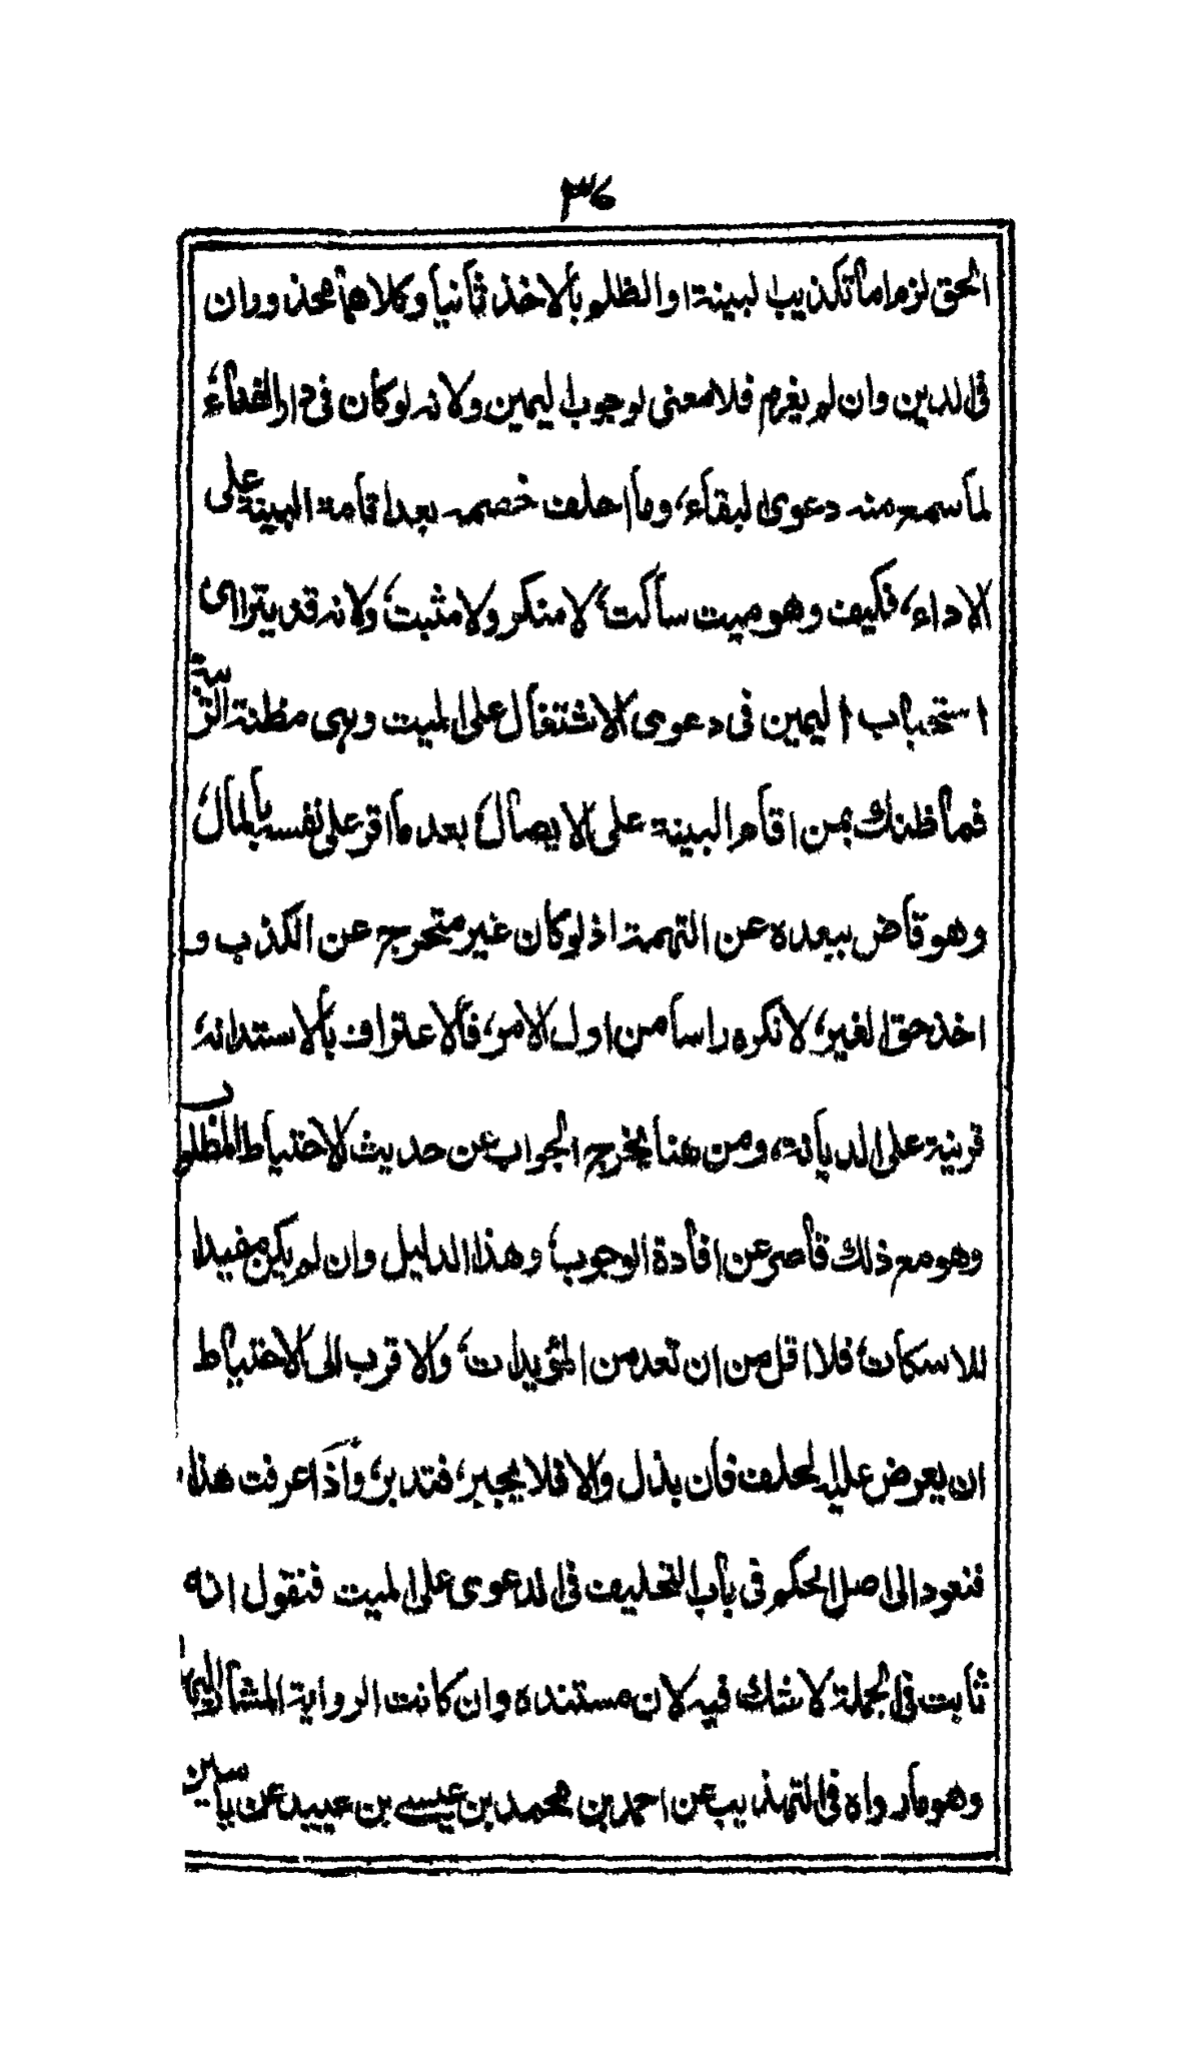 ٣٦
الحق لزم اما تكذيب البينة او الظلم بالاخذ ثانيا وكلاهما محذوران
فى الدين وان لم يغرم فلا معنى لوجوب اليمين ولانه لو كان فى دار الفناء
لما سمع منه دعوى البقاء، وما احلف خصمه بعد اقامة البينة على
الاداء، فكيف وهو ميت ساكت، لا منكر ولا مثبت، ولانه قد يترا اى
استحباب اليمين فى دعوى الاشتغال على الميت وهى مظنة الريبة
فما ظنك بمن اقام البينة على الايصال، بعد ما اقر على نفسه بالمال،
وهو قاض ببعده عن التهمة اذ لو كان غير متحرج عن الكذب و
اخذ حق الغير، لانكره راسا من اول الامر، فالاعتراف بالاستدانة،
قرينة على الديانة، ومن هنا يخرج الجواب عن حديث الاحتياط المطلوب
وهو مع ذلك قاصر عن افادة الوجوب، وهذا الدليل وان لم يكن مفيدا
للاسكات، فلا اقل من ان تعد من المؤيدات، والاقرب الى الاحتياط
ان يعرض عليه الحلف فان بذل والا فلا يجبر، فتدبر، واذا عرفت هذا
فنعود الى اصل الحكم فى باب التحليف فى الدعوى على الميت فنقول انه
ثابت فى الجملة لا شك فيه لان مستنده وان كانت الرواية المشار اليها
وهو ما رواه فى التهذيب عن احمد بن محمد بن عيسى بن عبيد عن ياسين